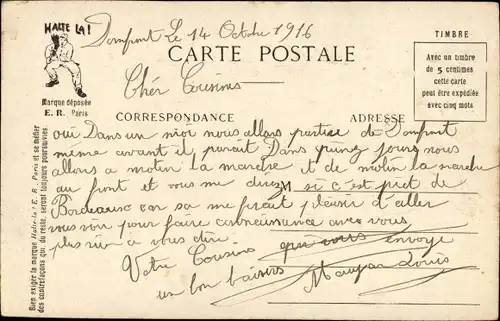 HALTE LA!
Domfront Le 14 Octobre 1916
TIMBRE
CARTE POSTALE
Avec un timbre
de 5 centimes
cette carte
peut être expédiée
avec cinq mots.
Chér Cousins
Marque déposée
E. R. Paris
CORRESPONDANCE
ADRESSE
oui Dans un moi nous allons partire de Domfront
même avant il parait Dans quinz jours nous
allons a la marche et de la marche
au front et vous me direz si c'est pret de
Bordeause car sa me ferait plaisir d'aller
vous voir pour faire connaissance avec vous
plus rien a vous dire
Votre Cousins qui vous envoye
un bon baisers Louis
Bien exiger la marque Halte-là! E. R., Paris et se méfier
des contrefaçons qui, du reste, seront toujours poursuivies.